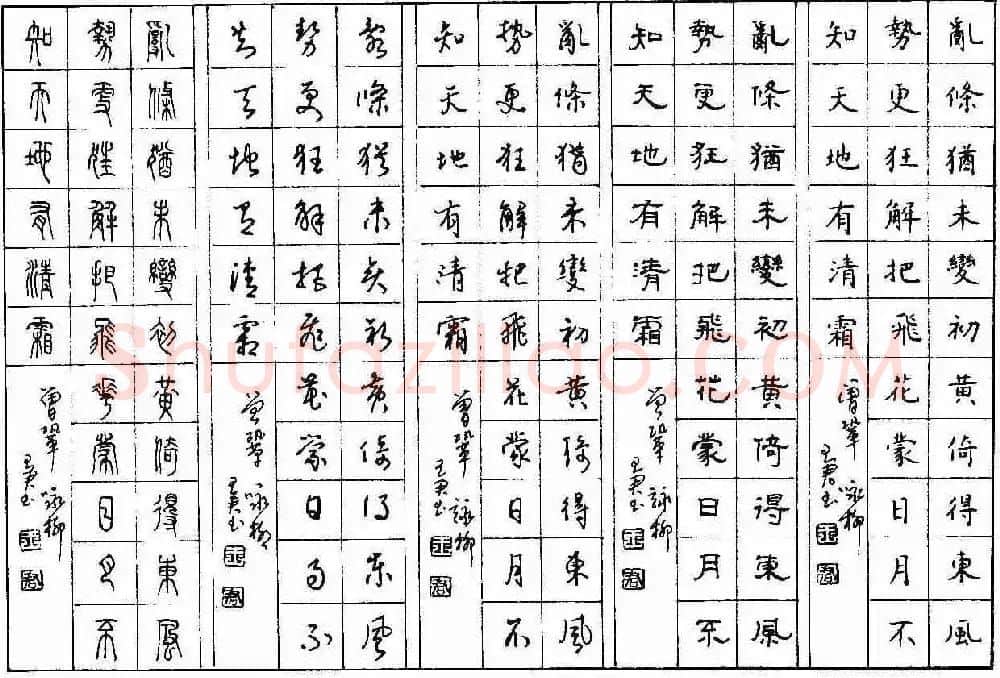 亂條猶未變初黃倚得東風
勢更狂解把飛花蒙日月不
知天地有清霜
曾鞏 咏柳
亂條猶未變初黃倚得東風
勢更狂解把飛花蒙日月不
知天地有清霜
曾鞏 詠柳
亂條猶未變初黃倚得東風
勢更狂解把飛花蒙日月不
知天地有清霜
曾鞏 詠柳
亂條猶未變初黃倚得東風
勢更狂解把飛花蒙日月不
知天地有清霜
曾鞏 咏柳
亂條猶未變初黃倚得東風
勢更狂解把飛花蒙日月不
知天地有清霜
曾鞏 咏柳
Shufaziliao.COM